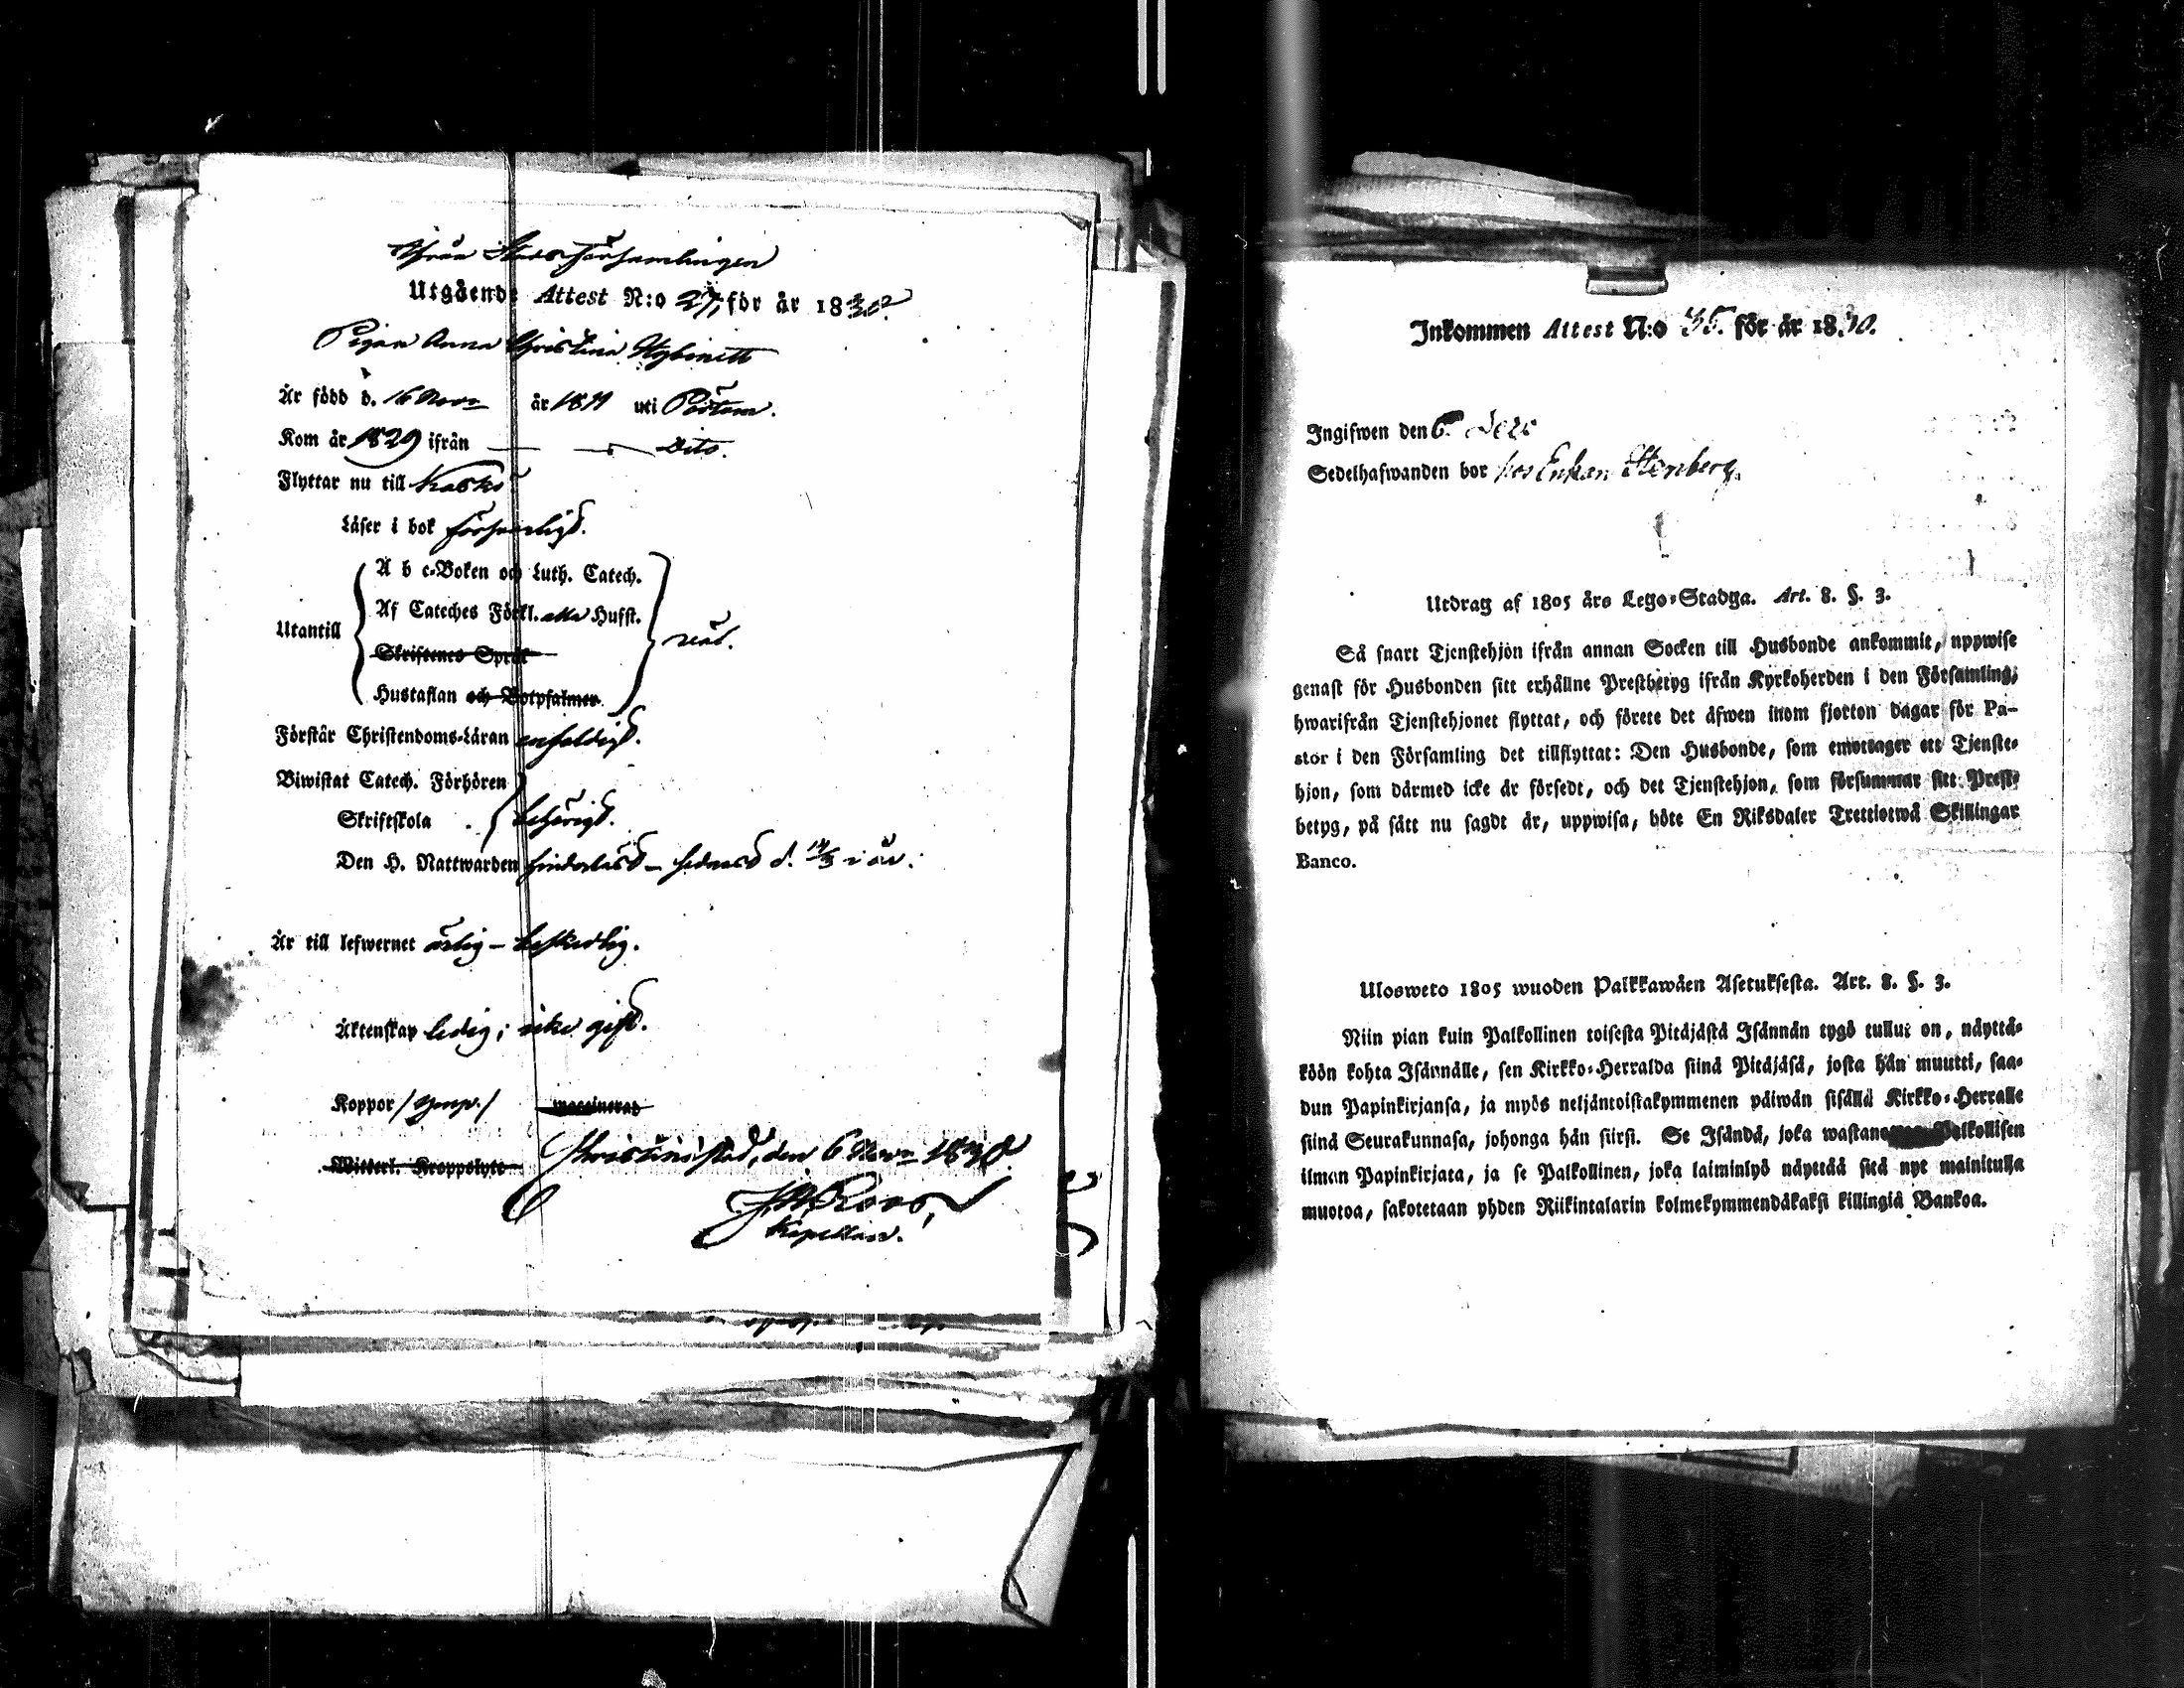 Ifrån Stadsförsamlingen
Utgående Attest N:o 27, för år 1830.
Pigan Anna Christina Nybinett
Är född d. 16 Nov. år 1811 uti Pörtom.
Kom år 1829 ifrån — — Dito.
Flyttar nu till Kaskö
Läser i bok försvarligt.
A b c-Boken och Luth. Catech.
Af Cateches Förkl. Hufst.
Utantill väl.
Skriftenes Språk
Hustaflan och Botpsalmer.
Förstår Christendoms-Läran enfaldigt.
Biwistat Catech. Förhören
Skriftskola behörigt.
Den H. Nattwarden sednast d. i år.
Är till lefwernet ärlig – beskedlig.
Äktenskap ledig; icke gift.
Koppor
waccinerad
Witterl. Kroppslyte Christinæstad, den 6 Nov. 1830.
Roos,
Kapellan.
Inkommen Attest N:o 35. för år 1830.
Ingifwen den 6 Dec.
Sedelhafwanden bor hos Enkan Stenberg.
Utdrag af 1805 års Lego-Stadga. Art. 8. §. 3.
Så snart Tjenstehjon ifrån annan Socken till Husbonde ankommit, uppwise
genast för Husbonden sitt erhållne Prestbetyg ifrån Kyrkoherden i den Församling,
hwarifrån Tjenstehjonet flyttat, och förete det äfwen inom fjorton dagar för Pa-
stor i den Församling det tillflyttat: Den Husbonde, som emottager ett Tjenste-
hjon, som därmed icke är försedt, och det Tjenstehjon, som försummar sitt Prest-
betyg, på sätt nu sagdt är, uppwisa, böte En Riksdaler Trettiotwå Skillingar
Banco.
Ulosweto 1805 wuoden Palkkawäen Asetuksesta. Art. 8. §. 3.
Niin pian kuin Palkollinen toisesta Pitäjästä Isännän tygö tullut on, näyttä-
köön kohta Isännälle, sen Kirkko-Herralda siinä Pitäjäsä, josta hän muutti, saa-
dun Papinkirjansa, ja myös neljäntoistakymmenen päiwän sisällä Kirkko-Herralle
siinä Seurakunnasa, johonga hän siirsi. Se Isändä, joka wastanottaa Palkollisen
ilman Papinkirjata, ja se Palkollinen, joka laiminlyö näyttää sitä nyt mainitulla
muotoa, sakotetaan yhden Riikintalarin kolmekymmendäkaksi killingiä Bankoa.